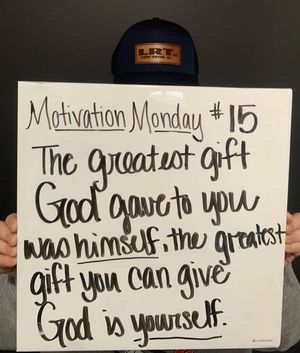 LRT
Motivation Monday #15
The greatest gift
God gave to you
was himself, the greatest
gift you can give
God is yourself.